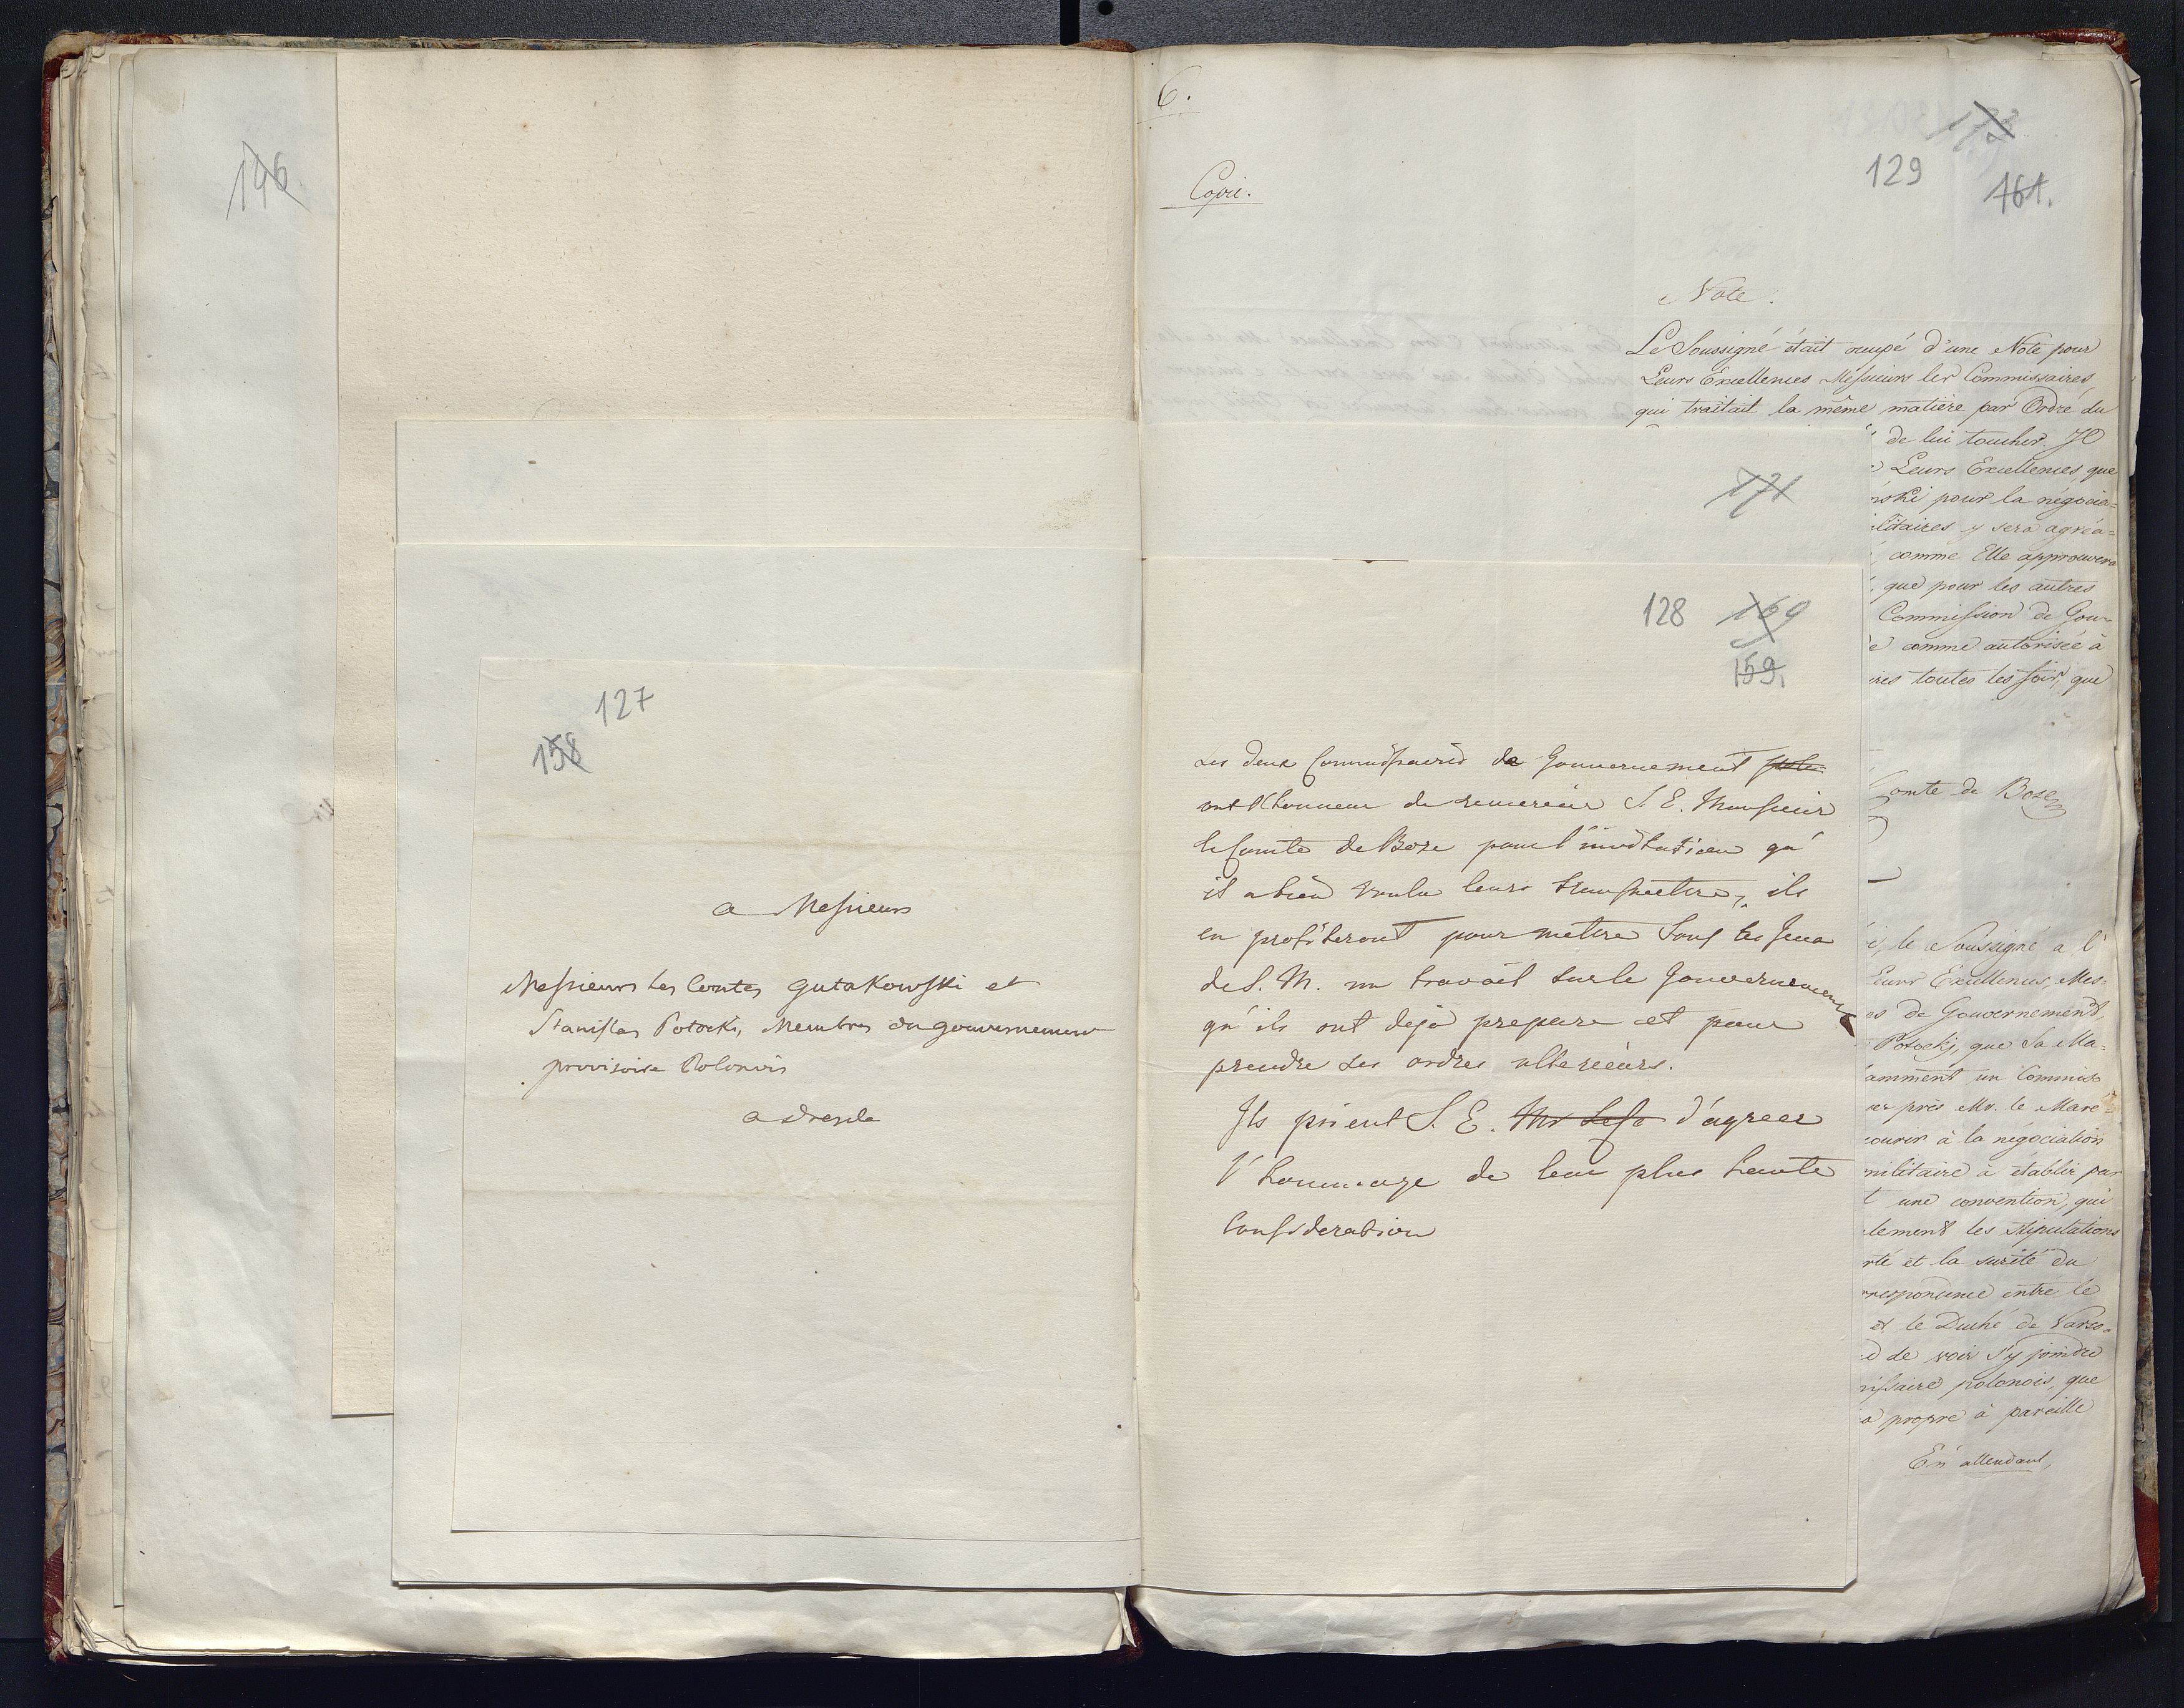 146
127
158
a Messieurs
Messieurs les Comtes Gutakowski et
Stanislas Potocki, Membres du gouvernement
provisoire Polonois
a dresde
6.
Copie.
173
129
161.
Note.
Le Soussigné était occupé d'une Note pour
Leurs Excellences Messieurs les Commissaires,
qui traitait la même matière par Ordre du
171
128 169
159.
Les deux Commissaires de Gouvernement
ont l'honneur de remercier S. E. Monsieur
le Comte de Boze pour l'invitation qu'
il a bien voulu leurs transmettre, ils
en profiteront pour metre sous les yeux
de S. M. un travail sur le Gouvernement
qu'ils ont deja prepare et pour
prendre ses ordres ulterieurs.
Ils prient S. E. d'agreer
l'hommage de leur plus haute
Consideration
de lui toucher. Il
Leurs Excellences, que
nski pour la négocia=
ilitaires y sera agréa=
comme Elle approuvera
que pour les autres
Commission de Gou=
e comme autorisée à
ires toutes les fois, que
Comte de Boze
i, le Soussigné a l'
Leurs Excellences, Mes=
es de Gouvernement,
Potocki, que Sa Ma=
amment un Commis
er près Mr. le Maré
courir à la négociation
militaire à établir par
t une convention, qui
lement les stipulations
rté et la sureté du
rrespondence entre le
et le Duché de Varso=
d de voir s'y joindre
missaire polonois, que
a propre à pareille
En attendant,